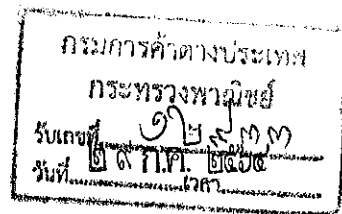 กรมการค้าต่างประเทศ
กระทรวงพาณิชย์
รับเลขที่
วันที่ ๒๙ ก.ค. ๒๕๖๔ เวลา